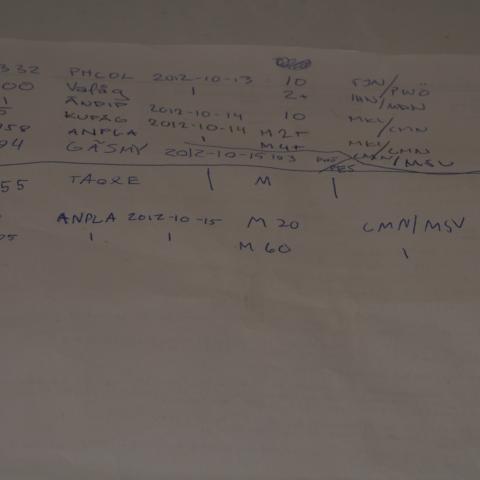 332 PHCOL 2012-10-13 10 TJN/PWÖ
00 Vafåg | 2+ /MDN
ÄNDIP 2012-10-14 10 MKL/CMN
KUFÅG 2012-10-14 M2+
58 ANPLA | M4+ MKL/CMN
94 GÄSMY 2012-10-15 103 CMN/MSV
55 TAQXE | M |
ANPLA 2012-10-15 M20 CMN/MSV
05 | | M60 |